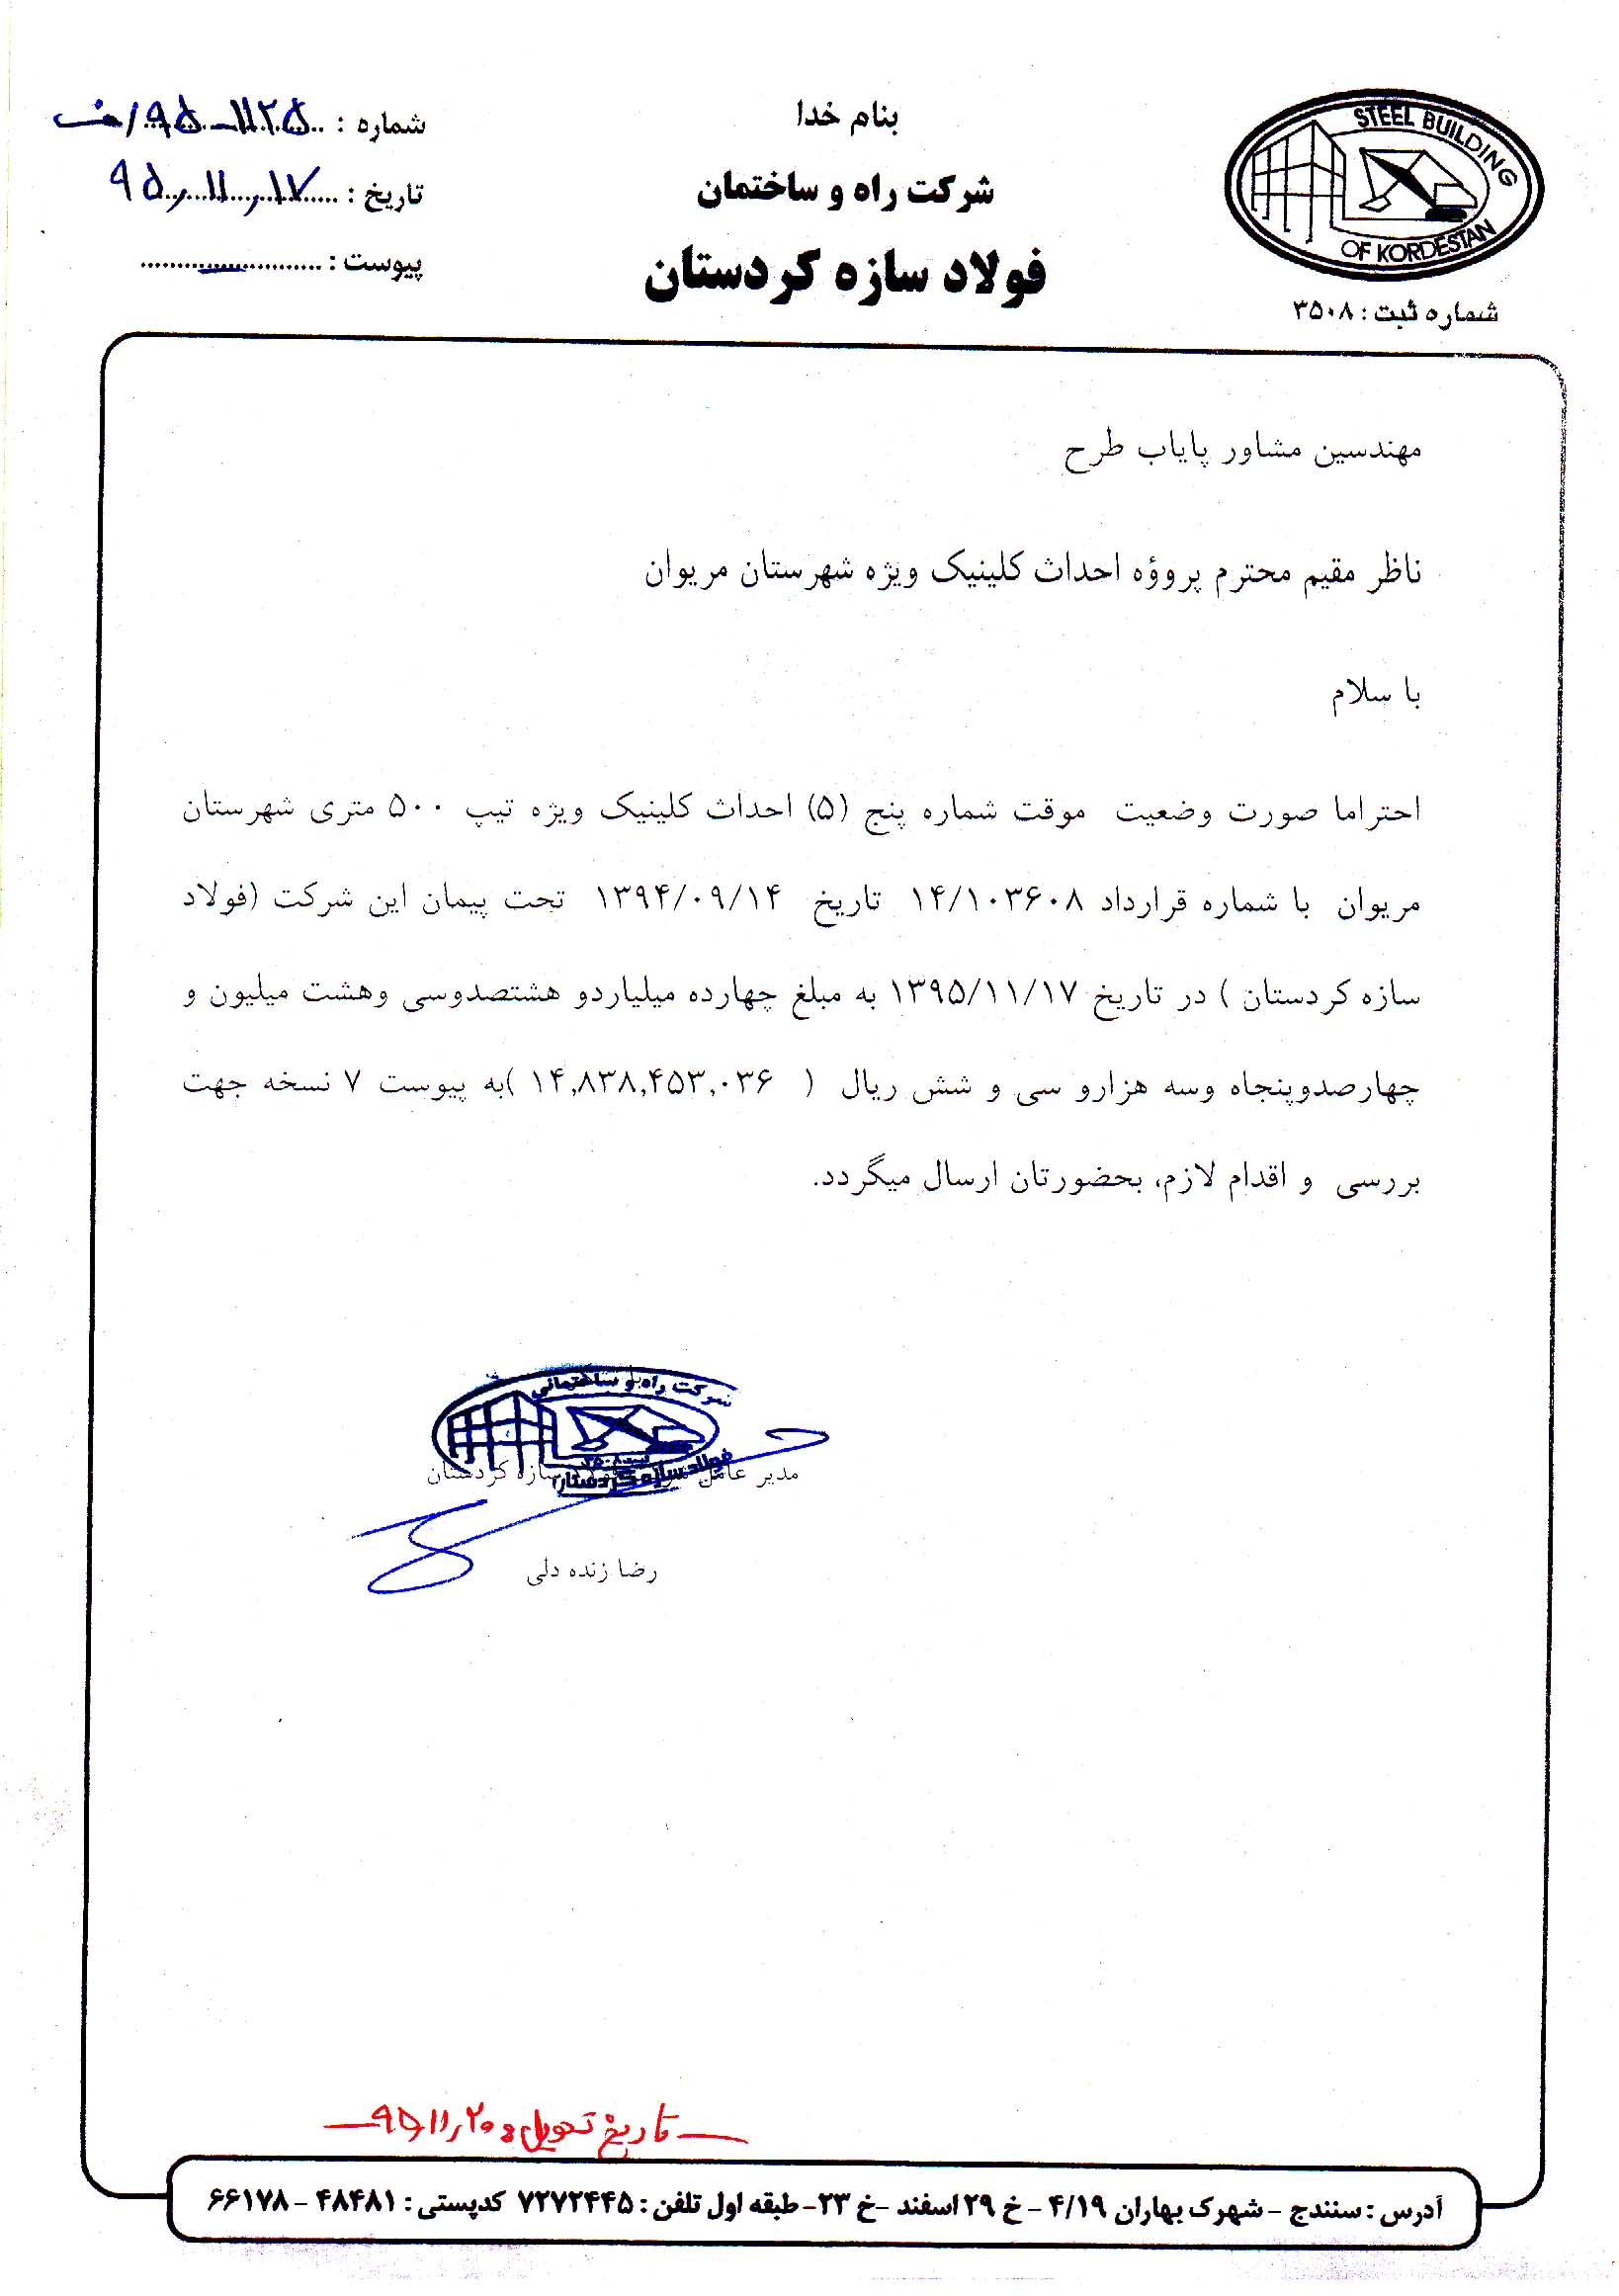 بنام خدا
شرکت راه و ساختمان
فولاد سازه کردستان
STEEL BUILDING
OF KORDESTAN
شماره ثبت : ۳۵۰۸
شماره : ۱۱۲۵-۹۵/ف
تاریخ : ۹۵/۱۱/۱۷
پیوست :
مهندسین مشاور پایاب طرح
ناظر مقیم محترم پروؤه احداث کلینیک ویژه شهرستان مریوان
با سلام
احتراما صورت وضعیت موقت شماره پنج (۵) احداث کلینیک ویژه تیپ ۵۰۰ متری شهرستان
مریوان با شماره قرارداد ۱۴/۱۰۳۶۰۸ تاریخ ۱۳۹۴/۰۹/۱۴ تحت پیمان این شرکت (فولاد
سازه کردستان ) در تاریخ ۱۳۹۵/۱۱/۱۷ به مبلغ چهارده میلیاردو هشتصدوسی وهشت میلیون و
چهارصدوپنجاه وسه هزارو سی و شش ریال ( ۱۴,۸۳۸,۴۵۳,۰۳۶ )به پیوست ۷ نسخه جهت
بررسی و اقدام لازم، بحضورتان ارسال میگردد.
شرکت راه و ساختمانی
فولاد سازه کردستان
مدیر عامل سازه کردستان
رضا زنده دلی
تاریخ تحویل: ۹۵/۱۱/۲۰
آدرس : سنندج - شهرک بهاران ۴/۱۹ - خ ۲۹ اسفند -خ ۲۳- طبقه اول تلفن : ۷۲۷۲۴۴۵ کدپستی : ۴۸۴۸۱ - ۶۶۱۷۸